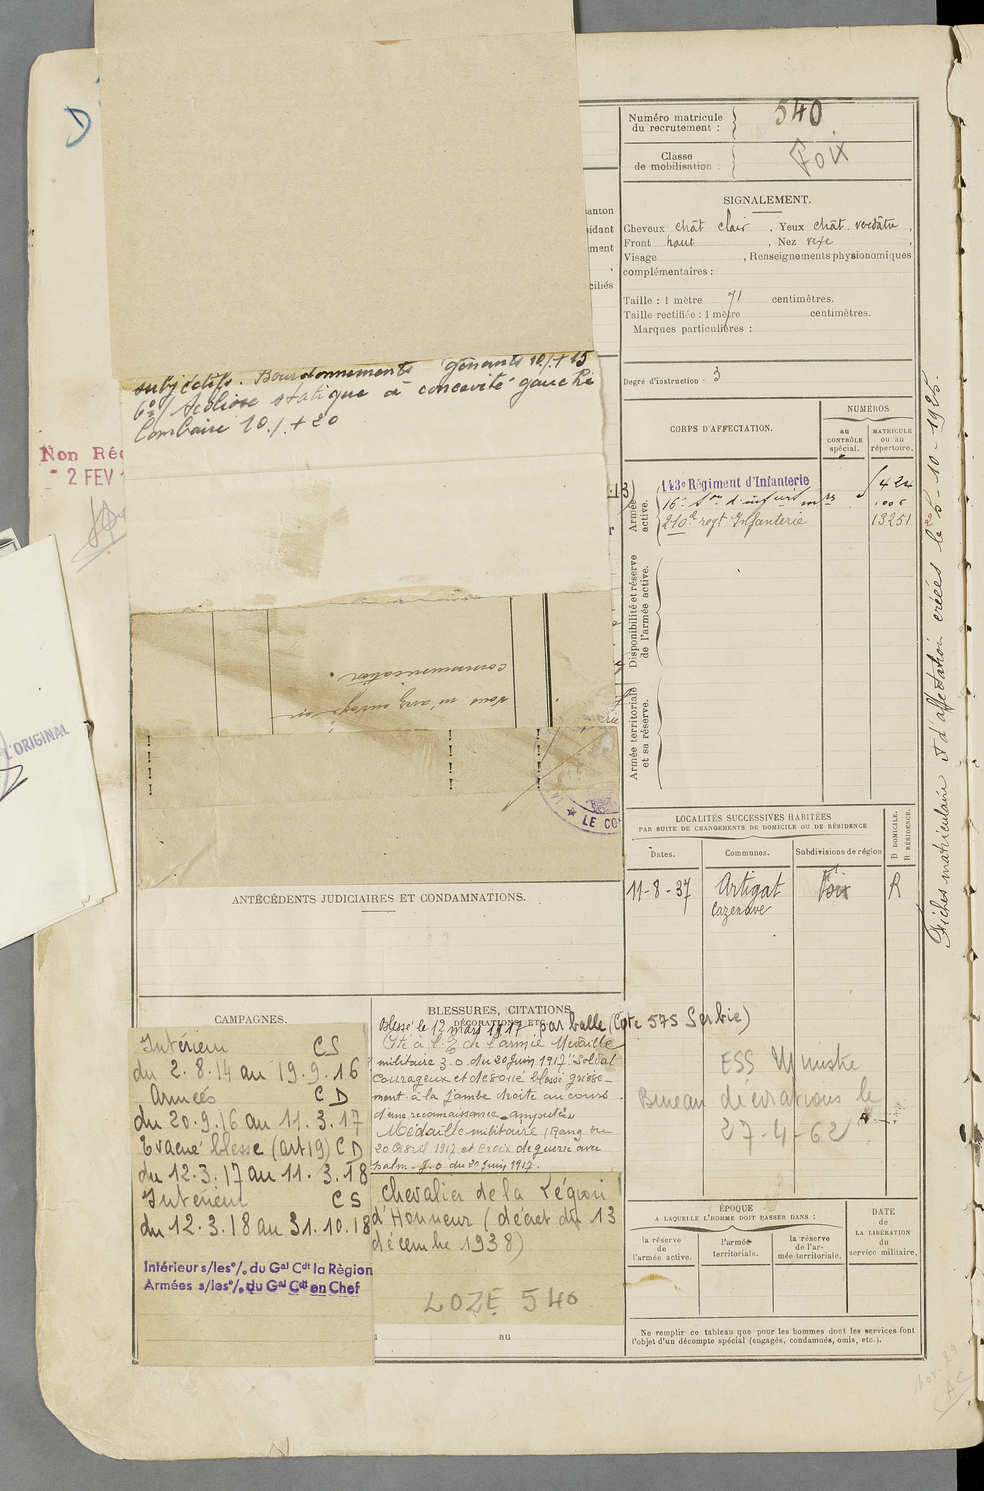 D
Numéro matricule
du recrutement :
540
Classe
de mobilisation :
Foix
SIGNALEMENT.
Cheveux chât clair , Yeux chât. verdâtre ,
Front haut , Nez vexe ,
Visage , Renseignements physionomiques
complémentaires :
Taille : 1 mètre 71 centimètres.
Taille rectifiée : 1 mètre centimètres.
Marques particulières :
Degré d'instruction . 3
anton
idant
ment
ciliés
subjectifs. Bourdonnements gênants 10 % + 15
6°/ Scoliose statique à concavité gauche
lombaire 10 % + 20
Non Réc
- 2 FEV 1
L'ORIGINAL
CORPS D'AFFECTATION.
NUMÉROS
au
CONTRÔLE
spécial.
MATRICULE
ou au
répertoire.
Armée
active.
143e Régiment d'Infanterie 424
16e Son d'infirmrs 1006
210e regt Infanterie 13251
Disponibilité et réserve
de l'armée active.
Armée territoriale
et sa réserve.
Fiches matriculaire et d'affectation créées le 20-10-1925.
communication
LE CO
LOCALITÉS SUCCESSIVES HABITÉES
PAR SUITE DE CHANGEMENTS DE DOMICILE OU DE RÉSIDENCE
D DOMICILE.
R RÉSIDENCE.
Dates.
Communes.
Subdivisions de région
11-8-37 Artigat Foix R
Cazenave
ANTÉCÉDENTS JUDICIAIRES ET CONDAMNATIONS.
CAMPAGNES.
Intérieur CS
du 2.8.14 au 19.9.16
Armées CD
du 20.9.16 au 11.3.17
Evacué blessé (art 19) CD
du 12.3.17 au 11.3.18
Intérieur CS
du 12.3.18 au 31.10.18
Intérieur s/les o/. du Gal Cdt la Règion
Armées s/les o/. du Gal Cdt en Chef
BLESSURES, CITATIONS,
DÉCORATIONS, ETC.
Blessé le 12 mars 1917 par balle (Cote 575 Serbie)
Cité à l'O de l'armée Médaille
militaire J.O. du 20 Juin 1917. Soldat
courageux et dévoué blessé griève-
ment à la jambe droite au cours
d'une reconnaissance - amputée
Médaille militaire (Rang du
20 Avril 1917 et Croix de guerre avec
palme J.O du 20 Juin 1917.
Chevalier de la Légion
d'Honneur (décret du 13
décembre 1938)
LOZE 540
au
ESS Ministre
Bureau décorations le
27-4-62
ÉPOQUE
A LAQUELLE L'HOMME DOIT PASSER DANS :
la réserve
de
l'armée active.
l'armée
territoriale.
la réserve
de l'ar-
mée territoriale.
DATE
de
LA LIBÉRATION
du
service militaire.
Ne remplir ce tableau que pour les hommes dont les services font
l'objet d'un décompte spécial (engagés, condamués, omis, etc.).